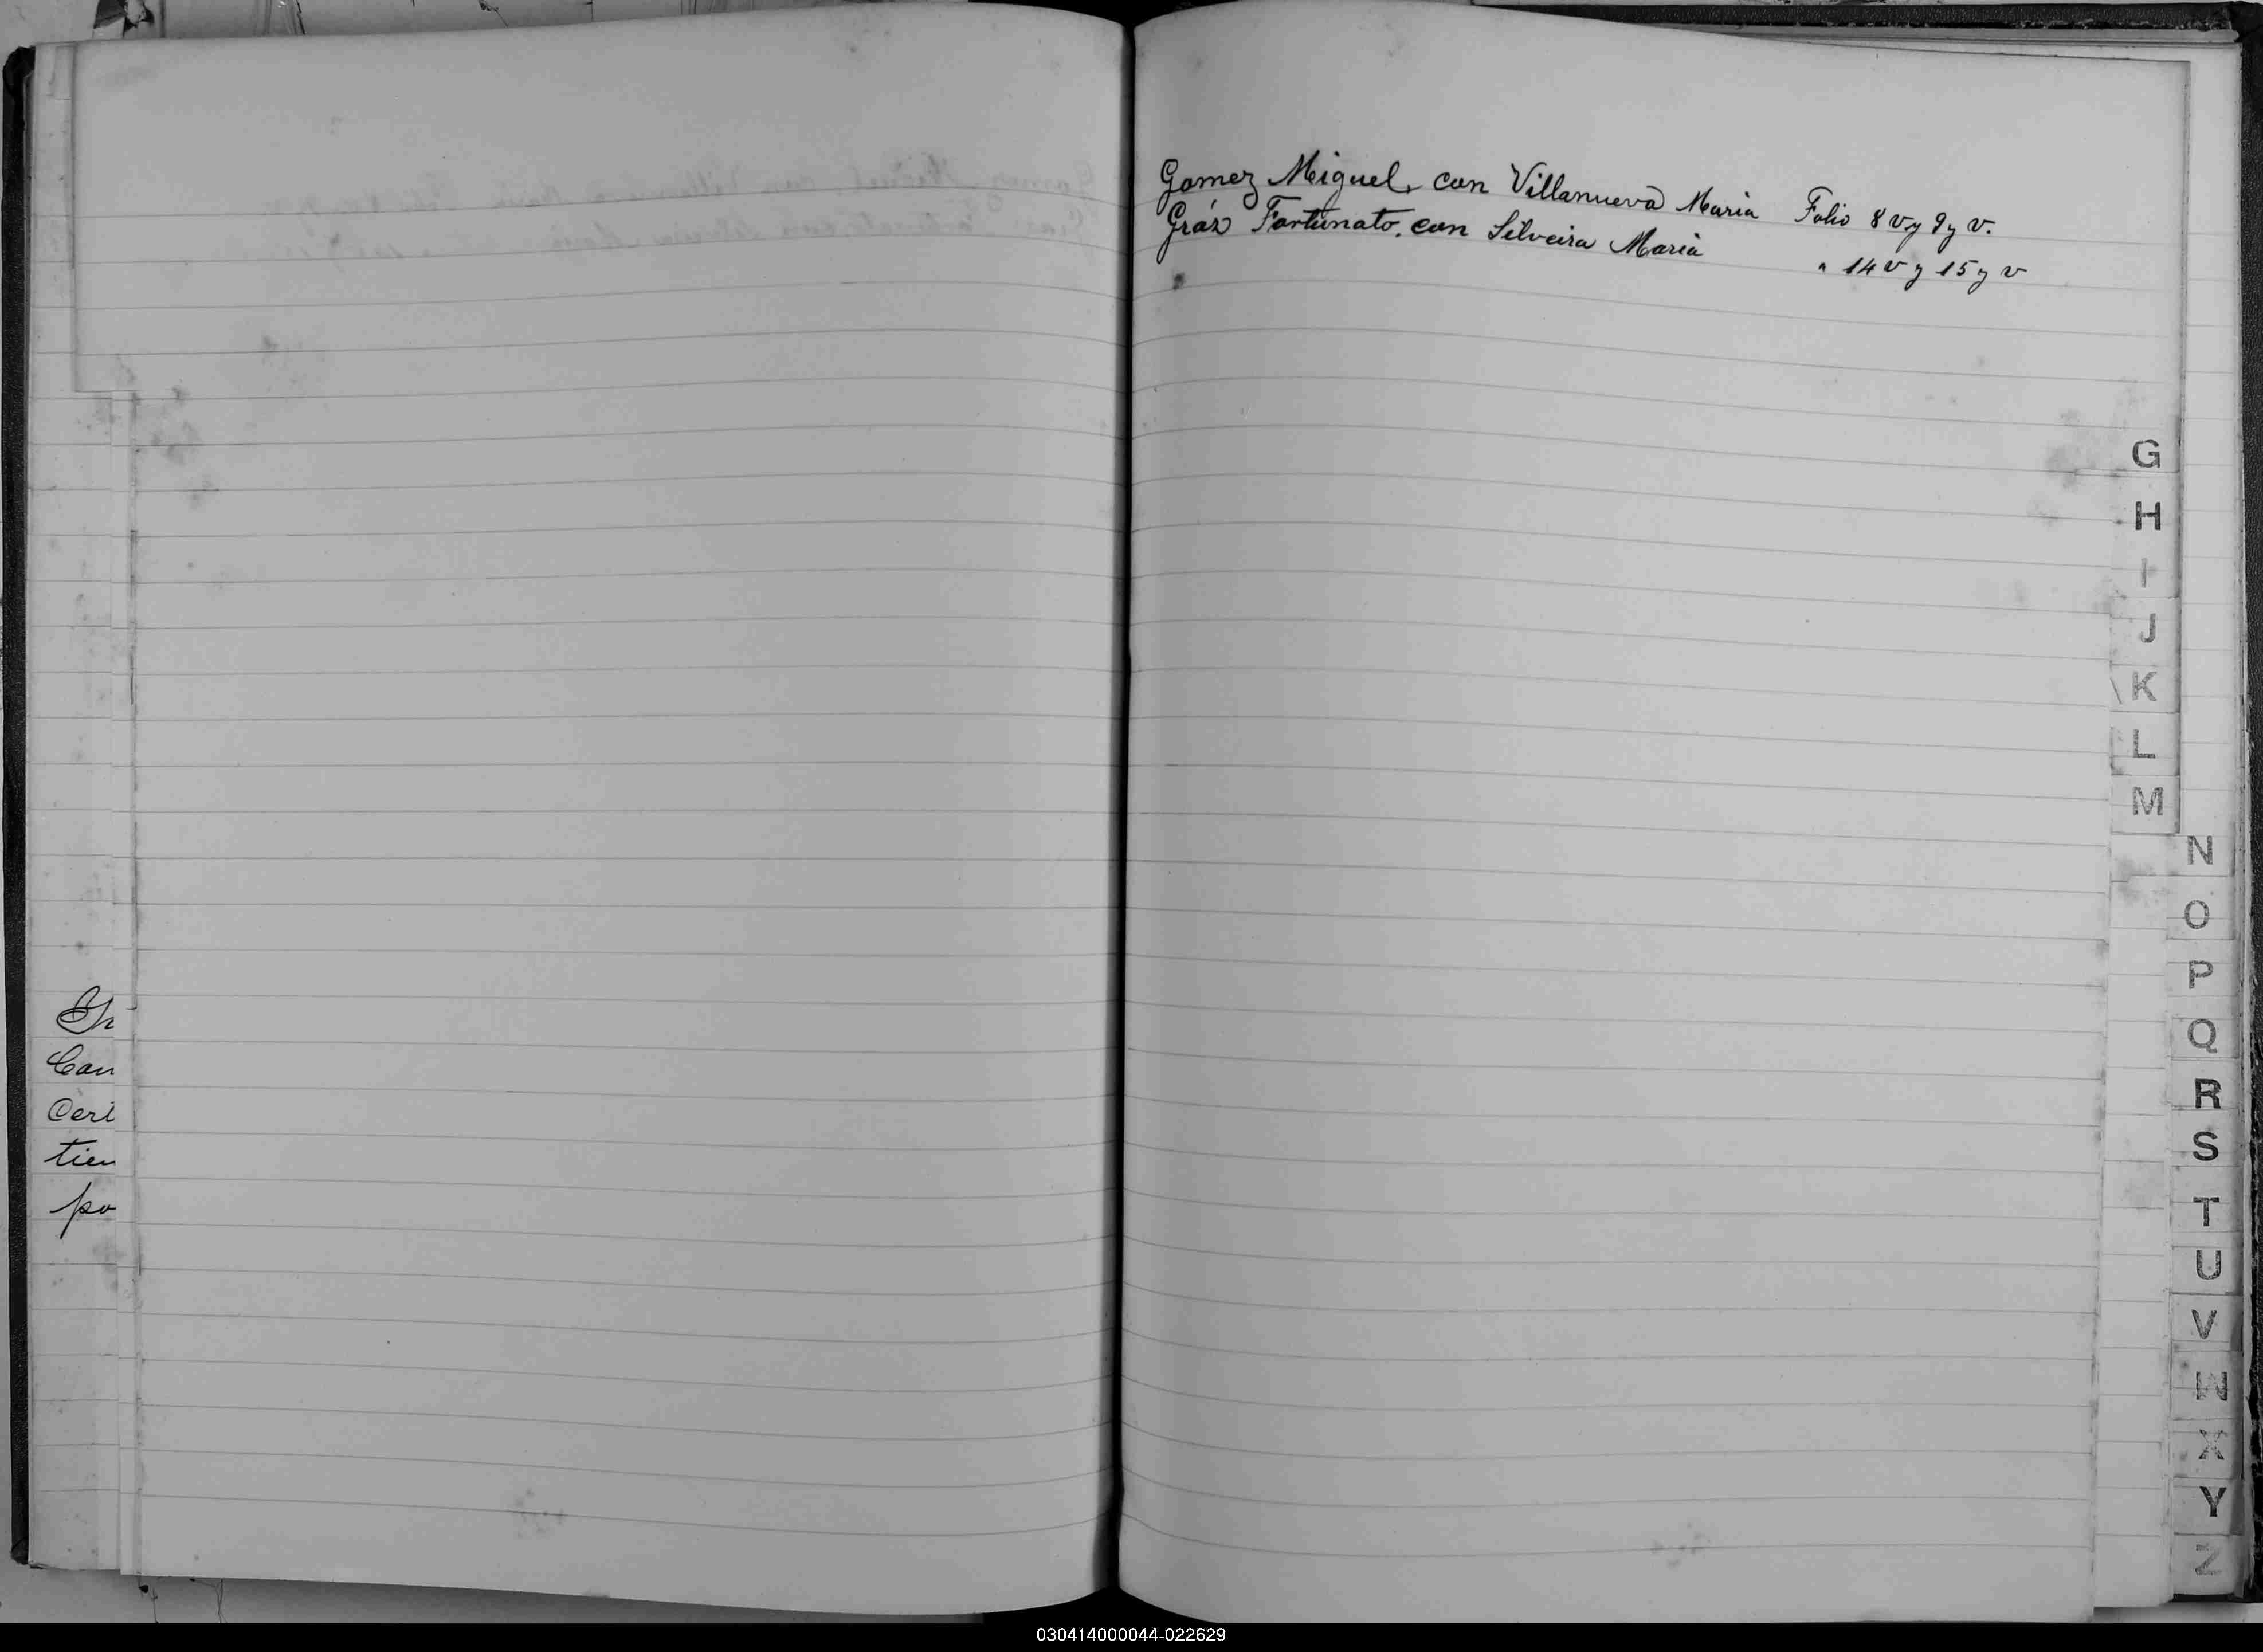 Gomez Miguel, con Villanueva Maria Folio 8 v y 9 y v.
Gráz Fortunato, con Silveira Maria " 14 v y 15 y v
G
H
I
J
K
L
M
N
O
P
Q
R
S
T
U
V
W
X
Y
Z
Can
Cert
tien
po
030414000044-022629